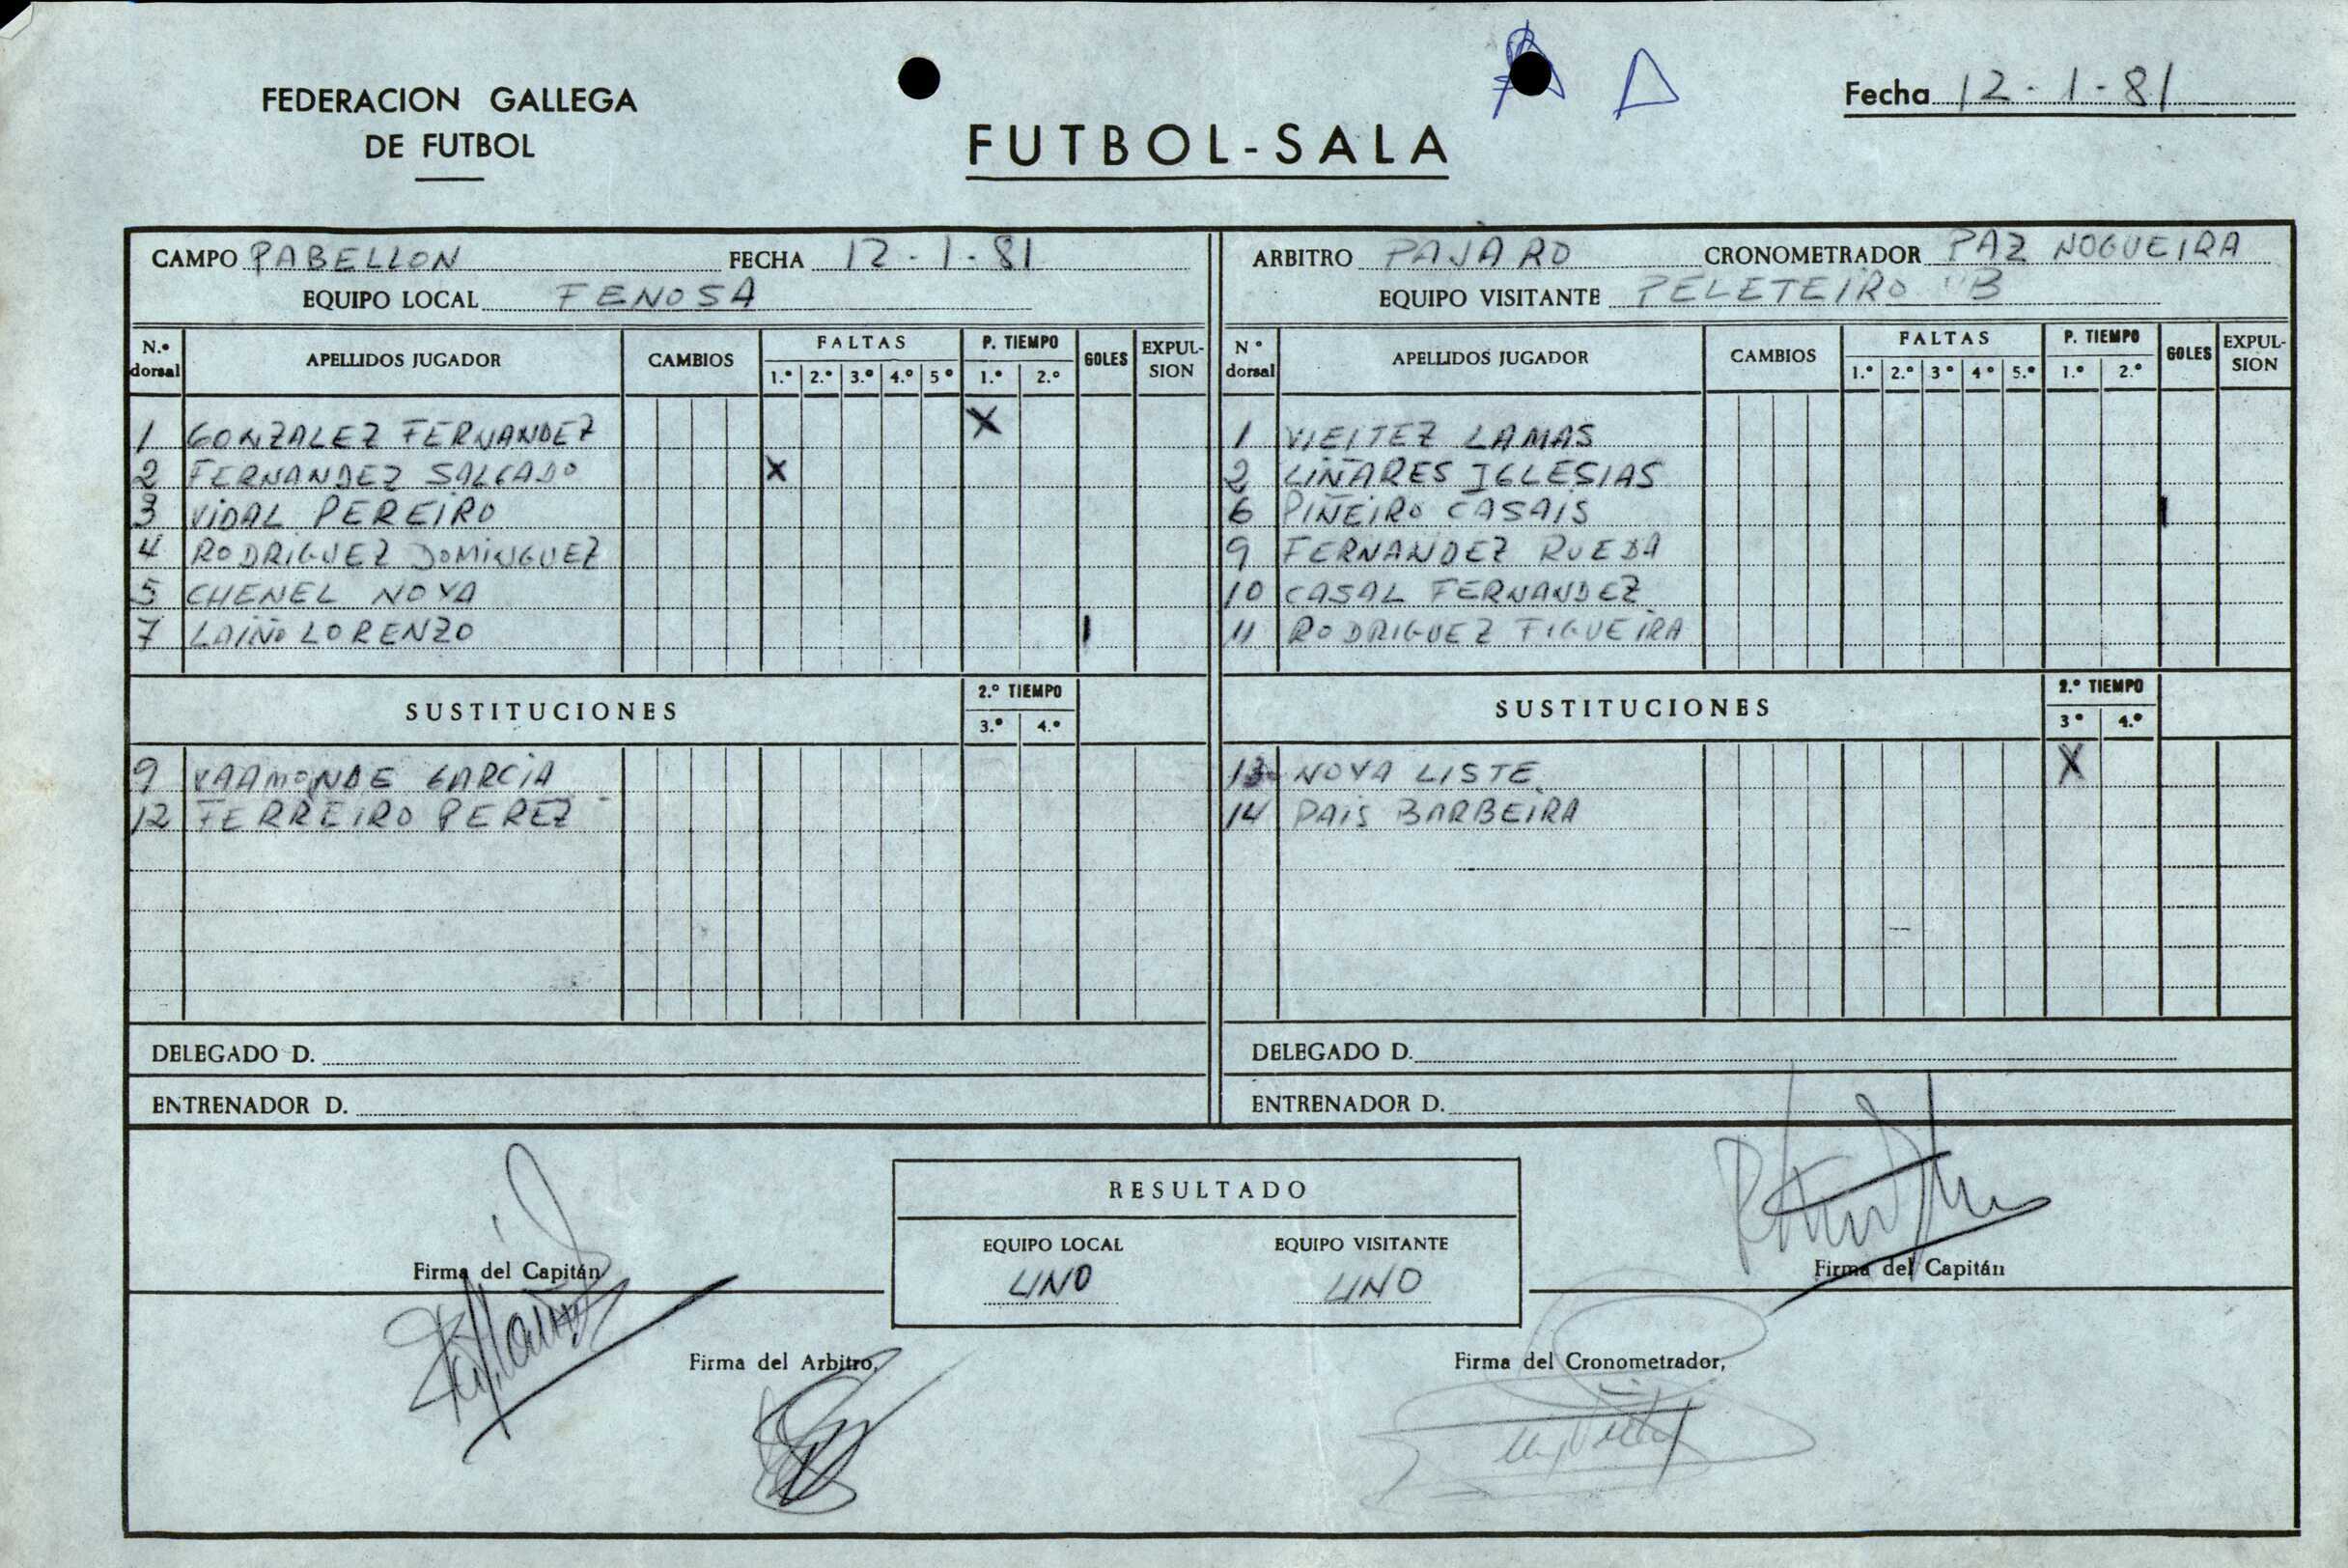 FEDERACION GALLEGA
DE FUTBOL
FUTBOL-SALA
Fecha 12-1-81
CAMPO PABELLON FECHA 12-1-81
EQUIPO LOCAL FENOSA
N.º dorsal APELLIDOS JUGADOR CAMBIOS FALTAS 1.º 2.º 3.º 4.º 5º P. TIEMPO 1.º 2.º GOLES EXPULSION
1 GONZALEZ FERNANDEZ X
2 FERNANDEZ SALGADO X
3 VIDAL PEREIRO
4 RODRIGUEZ DOMINGUEZ
5 CHENEL NOYA
7 LAIÑO LORENZO I
SUSTITUCIONES 2.º TIEMPO 3.º 4.º
9 VAAMONDE GARCIA
12 FERREIRO PEREZ
DELEGADO D.
ENTRENADOR D.
ARBITRO PAJARO CRONOMETRADOR PAZ NOGUEIRA
EQUIPO VISITANTE PELETEIRO "B
Nº dorsal APELLIDOS JUGADOR CAMBIOS FALTAS 1.º 2.º 3º 4º 5.º P. TIEMPO 1.º 2.º GOLES EXPULSION
1 VIEITEZ LAMAS
2 LIÑARES IGLESIAS
6 PIÑEIRO CASAIS I
9 FERNANDEZ RUEDA
10 CASAL FERNANDEZ
11 RODRIGUEZ FIGUEIRA
SUSTITUCIONES 2.º TIEMPO 3º 4.º
13 NOYA LISTE X
14 PAIS BARBEIRA
DELEGADO D.
ENTRENADOR D.
RESULTADO
EQUIPO LOCAL EQUIPO VISITANTE
UNO UNO
Firma del Capitán
Firma del Capitán
Firma del Arbitro,
Firma del Cronometrador,